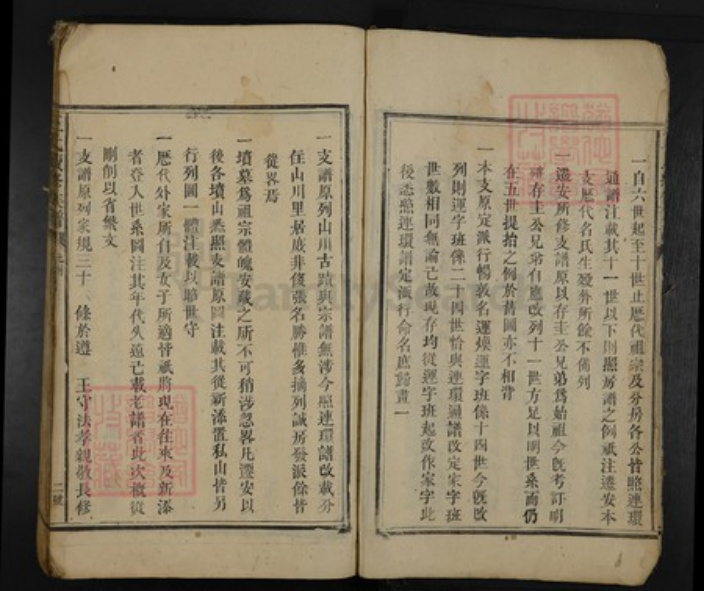 一自六世起至十世止歷代祖宗及分房各公皆照連環
通譜注載其十一世以下則照房譜之例祇注遷安本
支歷代名氏生歿外所餘不備列
一遷安所修支譜原以存圭公兄弟為始祖今既考訂明
確存圭公兄弟自應改列十一世方足以明世系而仍
在五世提抬之例於舊圖亦不相背
一本支原定派行暢敦名運燦運字班係十四世今既改
列則運字班係二十四世恰與連環通譜改定家字班
世數相同無論已故現存均從運字班起改作家字此
後悉照連環譜定派行命名庶歸畫一
一支譜原列山川古蹟與宗譜無涉今照連環譜改載分
住山川里居庶非後張名勝惟多摘列誠房發派餘皆
從畧焉
一墳墓為祖宗體魄安藏之所不可稍涉忽畧凡遷安以
後各墳山悉照支譜原圖注載其從新添置私山皆另
行列圖一體注載以昭世守
一歷代外家所自及女子所適皆祇將現在往來及新添
者登入世系圖注其年代久遠已載老譜者此次概從
刪削以省繁文
一支譜原列家規三十 條於遵 王守法孝親敬長修
二號
FamilySearch